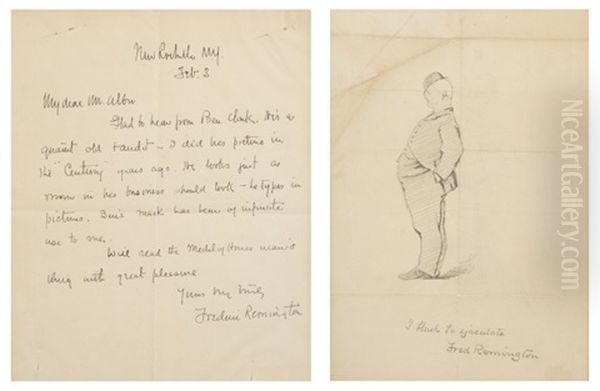 New Rochelle NY.
Feb. 3
My dear Mr.
Glad to hear from Ben Clark. He's a
quaint old bandit - I did his picture in
the "Century" years ago. He looks just as
man in his business should look - he types in
pictures. Ben's has been of infinite
use to me.
Will read the Medal of Honor man's
thing with great pleasure.
Yours very truly
Frederic Remington
I to ejaculate
Fred Remington
NiceArtGallery.com